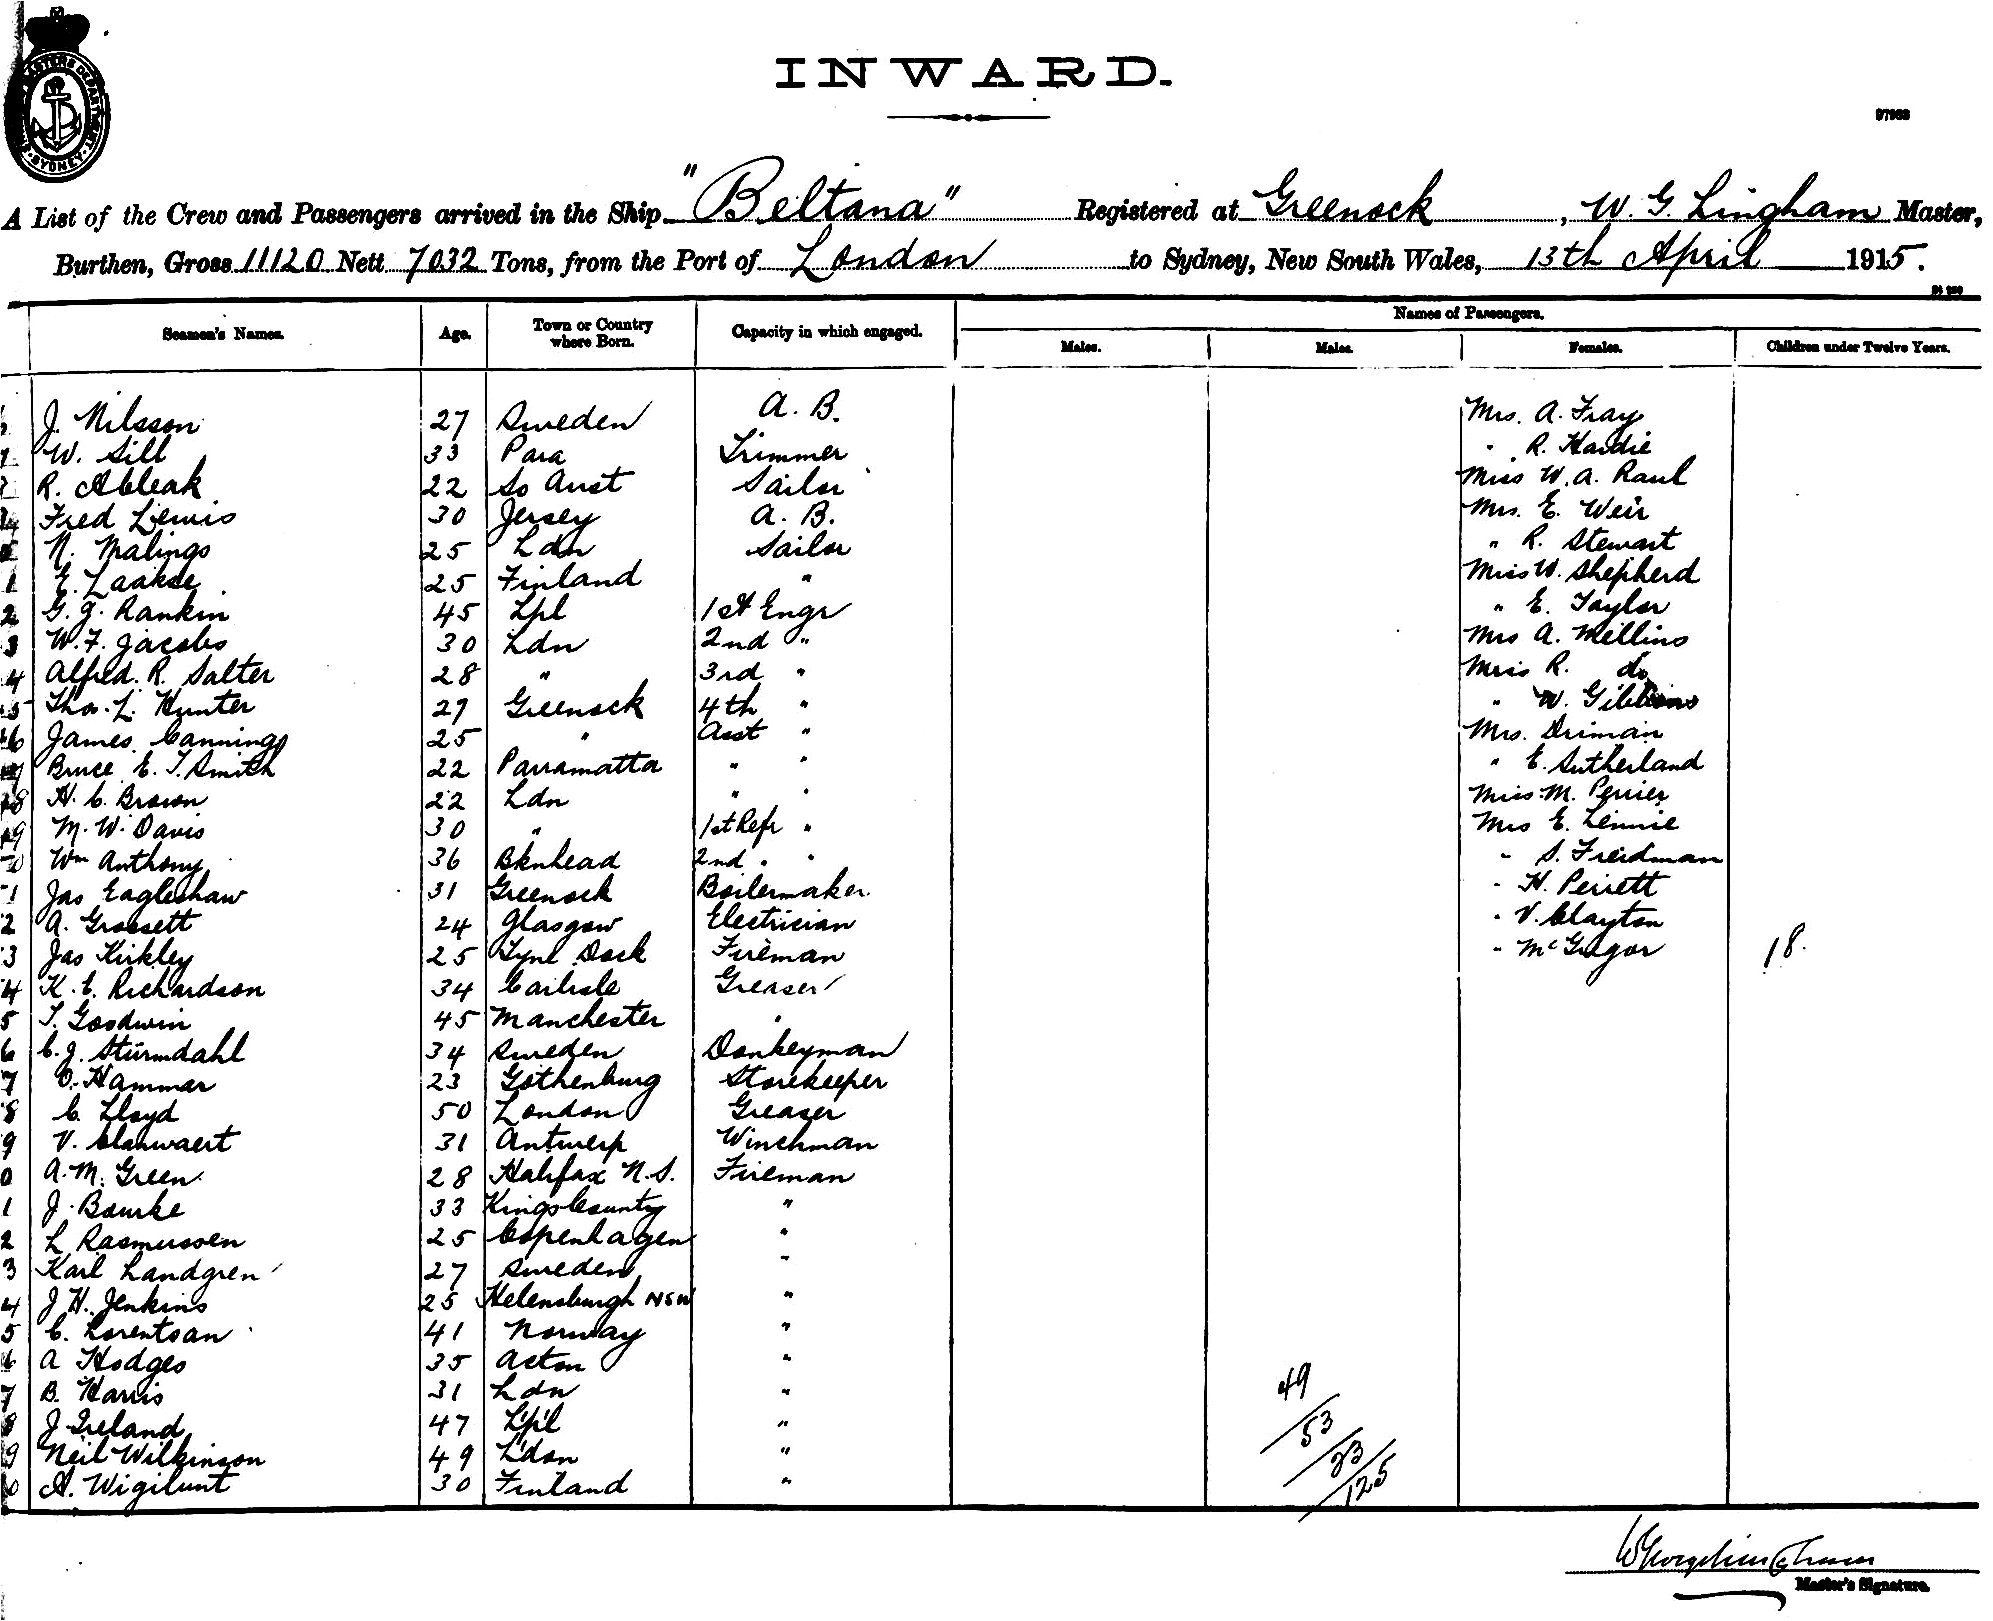 INWARD.
97983
A List of the Crew and Passengers arrived in the Ship "Beltana" Registered at Greenock, W. G. Lingham Master,
Burthen, Gross 11120 Nett 7032 Tons, from the Port of London to Sydney, New South Wales, 13th April 1915.
Names of Passengers.
Seamen's Names. Age. Town or Country where Born. Capacity in which engaged. Males. Males. Females. Children under Twelve Years.
J. Nilsson 27 Sweden A. B. Mrs. A. Fray
W. Sill 33 Para Trimmer " R. Hardie
R. Ableak 22 So Aust Sailor Miss W. A. Raul
Fred Lewis 30 Jersey A. B. Mrs. E. Weir
N. Malings 25 Ldn Sailor " R. Stewart
E. Laakse 25 Finland " Miss W. Shepherd
G. J. Rankin 45 Lpl 1st Engr " E. Taylor
W. F. Jacobs 30 Ldn 2nd " Mrs A. Mellins
Alfred. R. Salter 28 " 3rd " Miss R. do
Thos. L. Hunter 27 Greenock 4th " " W. Gibbons
James Cannings 25 " Asst " Mrs. Driman
Bruce E. T. Smith 22 Parramatta " " " E. Sutherland
H. C. Brown 22 Ldn " " Miss M. Perrier
M. W. Davis 30 " 1st Refr " Mrs E. Lennie
Wm Anthony 36 Bknhead 2nd " " " S. Freidman
Jas Eagleshaw 31 Greenock Boilermaker " H. Perrett
A. Grossett 24 Glasgow Electrician " V. Clayton
Jas Kirkley 25 Tyne Dock Fireman " McGregor 18.
K. E. Richardson 34 Carlisle Greaser
T. Goodwin 45 Manchester "
C. J. Sturmdahl 34 Sweden Donkeyman
O. Hammar 23 Gothenburg Storekeeper
C. Lloyd 50 London Greaser
V. Clauwaert 31 Antwerp Winchman
A. M. Green 28 Halifax N.S. Fireman
J. Bourke 33 Kings County "
L Rasmussen 25 Copenhagen "
Karl Landgren 27 Sweden "
J H. Jenkins 25 Helensburgh NSW "
C. Lorentsan 41 Norway "
A Hodges 35 Acton "
B. Harris 31 Ldn "
J Ireland 47 L'p'l "
Neil Wilkinson 49 L'don "
A. Wigilunt 30 Finland "
49
53
23
125
Master's Signature.